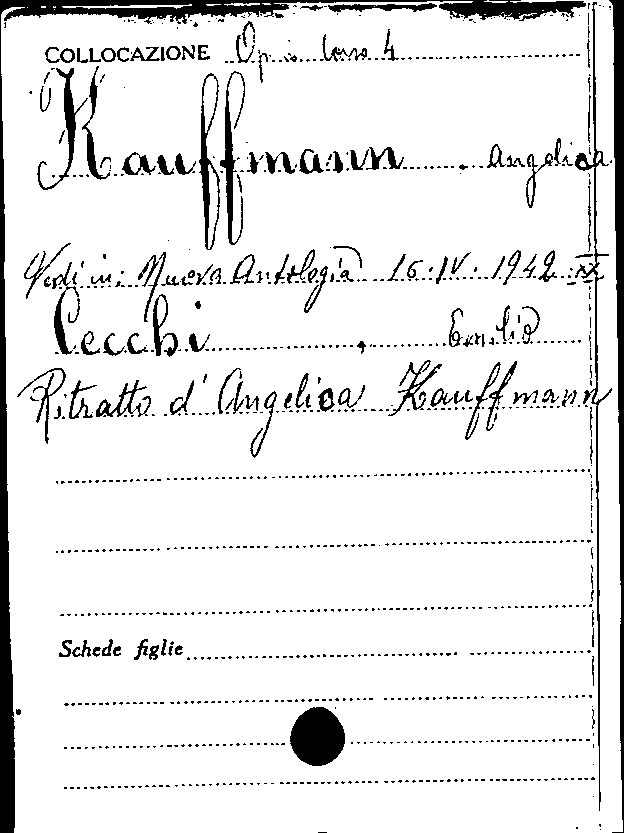 COLLOCAZIONE Op
Kauffmann . Angelica
Vedi in: Nuova Antologia 16·IV·1942·XX
Cecchi , Emilio
Ritratto d' Angelica Kauffmann
Schede figlie